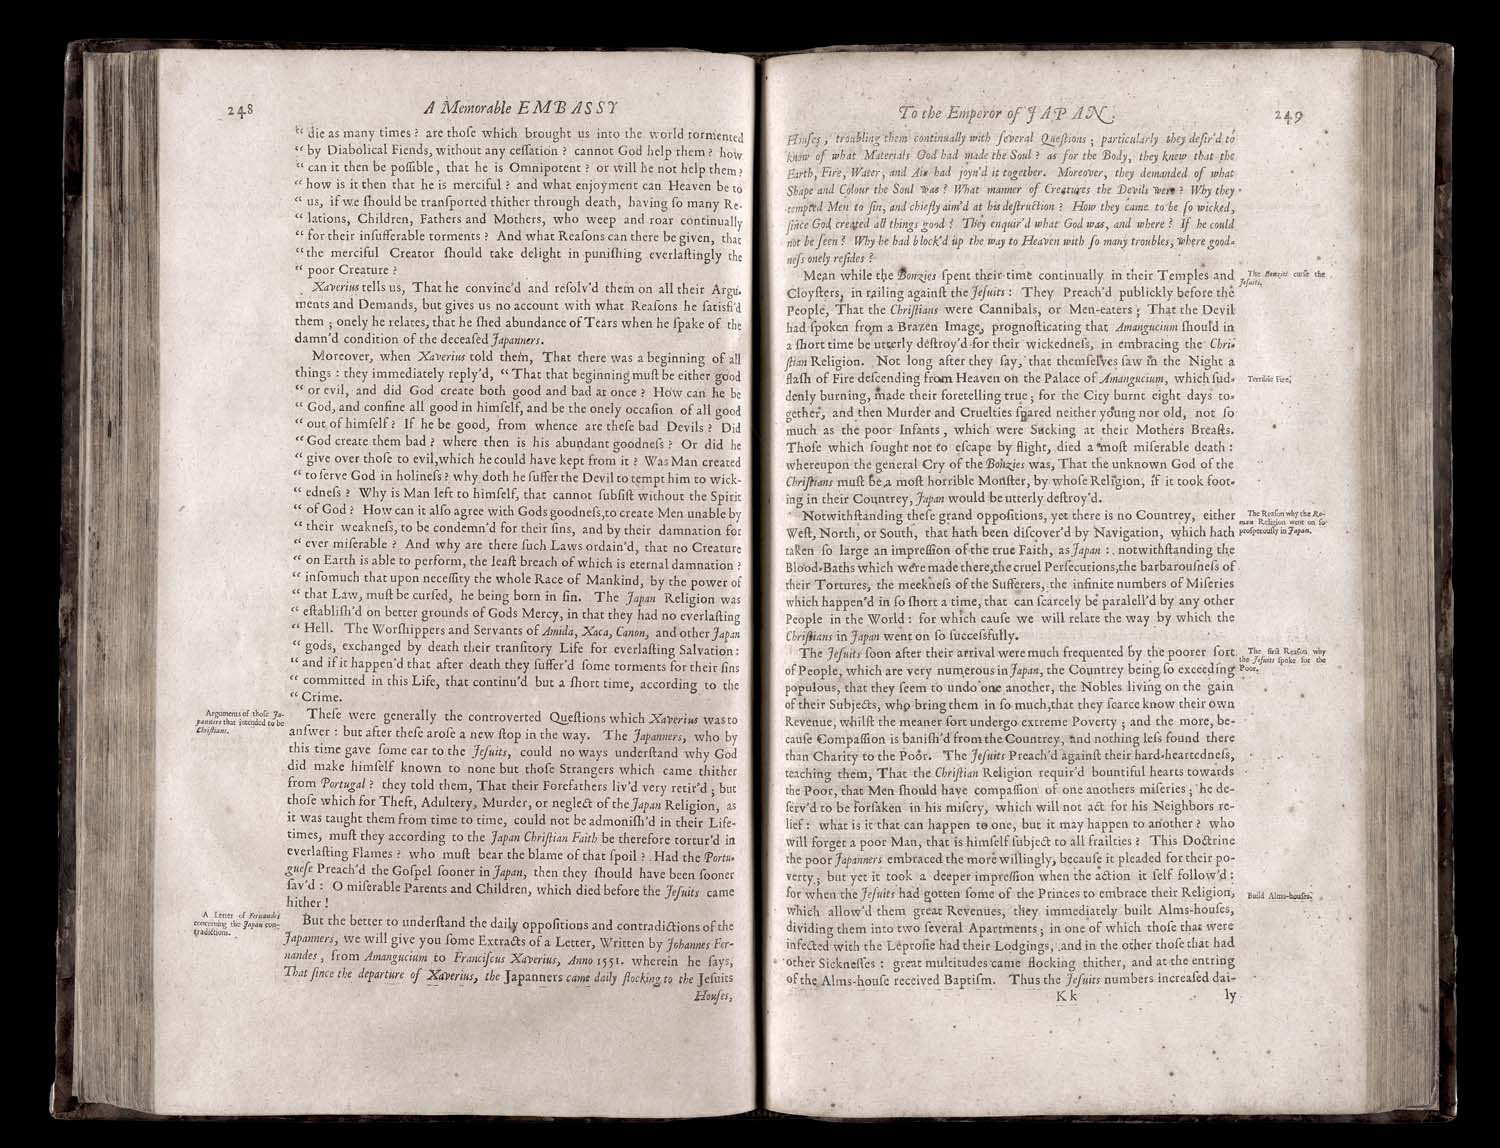 248
A Memorable EMBASSY
“ die as many times ? are thoſe which brought us into the world tormented
“ by Diabolical Fiends, without any ceſſation ? cannot God help them ? how
“ can it then be poſſible, that he is Omnipotent ? or will he not help them ?
“ how is it then that he is merciful ? and what enjoyment can Heaven be to
“ us, if we ſhould be tranſported thither through death, having ſo many Re-
“ lations, Children, Fathers and Mothers, who weep and roar continually
“ for their inſufferable torments ? And what Reaſons can there be given, that
“ the merciful Creator ſhould take delight in puniſhing everlaſtingly the
“ poor Creature ?
Xaverius tells us, That he convinc'd and reſolv'd them on all their Argu-
ments and Demands, but gives us no account with what Reaſons he ſatisfi'd
them ; onely he relates, that he ſhed abundance of Tears when he ſpake of the
damn'd condition of the deceaſed Japanners.
Moreover, when Xaverius told them, That there was a beginning of all
things : they immediately reply'd, “ That that beginning muſt be either good
“ or evil, and did God create both good and bad at once ? How can he be
“ God, and confine all good in himſelf, and be the onely occaſion of all good
“ out of himſelf ? If he be good, from whence are theſe bad Devils ? Did
“ God create them bad ? where then is his abundant goodneſs ? Or did he
“ give over thoſe to evil, which he could have kept from it ? Was Man created
“ to ſerve God in holineſs ? why doth he ſuffer the Devil to tempt him to wick-
“ edneſs ? Why is Man left to himſelf, that cannot ſubſiſt without the Spirit
“ of God ? How can it alſo agree with Gods goodneſs, to create Men unable by
“ their weakneſs, to be condemn'd for their ſins, and by their damnation for
“ ever miſerable ? And why are there ſuch Laws ordain'd, that no Creature
“ on Earth is able to perform, the leaſt breach of which is eternal damnation ?
“ inſomuch that upon neceſſity the whole Race of Mankind, by the power of
“ that Law, muſt be curſed, he being born in ſin. The Japan Religion was
“ eſtabliſh'd on better grounds of Gods Mercy, in that they had no everlaſting
“ Hell. The Worſhippers and Servants of Amida, Xaca, Canon, and other Japan
“ gods, exchanged by death their tranſitory Life for everlaſting Salvation :
“ and if it happen'd that after death they ſuffer'd ſome torments for their ſins
“ committed in this Life, that continu'd but a ſhort time, according to the
“ Crime.
Arguments of thoſe Ja-
panners that intended to be
Chriſtians.
Theſe were generally the controverted Queſtions which Xaverius was to
anſwer : but after theſe aroſe a new ſtop in the way. The Japanners, who by
this time gave ſome ear to the Jeſuits, could no ways underſtand why God
did make himſelf known to none but thoſe Strangers which came thither
from Portugal ? they told them, That their Forefathers liv'd very retir'd ; but
thoſe which for Theft, Adultery, Murder, or neglect of the Japan Religion, as
it was taught them from time to time, could not be admoniſh'd in their Life-
times, muſt they according to the Japan Chriſtian Faith be therefore tortur'd in
everlaſting Flames ? who muſt bear the blame of that ſpoil ? Had the Portu-
gueſe Preach'd the Goſpel ſooner in Japan, then they ſhould have been ſooner
ſav'd : O miſerable Parents and Children, which died before the Jeſuits came
hither !
A Letter of Fernandes
concerning the Japan con-
tradictions.
But the better to underſtand the daily oppoſitions and contradictions of the
Japanners, we will give you ſome Extracts of a Letter, Written by Johannes Fer-
nandes, from Amangucium to Franciſcus Xaverius, Anno 1551. wherein he ſays,
That ſince the departure of Xaverius, the Japanners came daily flocking to the Jeſuits
Houſes,
To the Emperor of JAPAN.
249
Houſes, troubling them continually with ſeveral Queſtions ; particularly they deſir'd to
know of what Materials God had made the Soul ? as for the Body, they knew that the
Earth, Fire, Water, and Air had joyn'd it together. Moreover, they demanded of what
Shape and Colour the Soul was ? What manner of Creatures the Devils were ? Why they
tempted Men to ſin, and chiefly aim'd at his deſtruction ? How they came to be ſo wicked,
ſince God created all things good ? They enquir'd what God was, and where ? If he could
not be ſeen ? Why he had block'd up the way to Heaven with ſo many troubles, where good-
neſs onely reſides ?
Mean while the Bonzies ſpent their time continually in their Temples and
Cloyſters, in railing againſt the Jeſuits : They Preach'd publickly before the
People, That the Chriſtians were Cannibals, or Men-eaters ; That the Devil
had ſpoken from a Brazen Image, prognoſticating that Amangucium ſhould in
a ſhort time be utterly deſtroy'd for their wickedneſs, in embracing the Chri-
ſtian Religion. Not long after they ſay, that themſelves ſaw in the Night a
flaſh of Fire deſcending from Heaven on the Palace of Amangucium, which ſud-
denly burning, made their foretelling true ; for the City burnt eight days to-
gether, and then Murder and Cruelties ſpared neither young nor old, not ſo
much as the poor Infants, which were Sucking at their Mothers Breaſts.
Thoſe which ſought not to eſcape by flight, died a moſt miſerable death :
whereupon the general Cry of the Bonzies was, That the unknown God of the
Chriſtians muſt be a moſt horrible Monſter, by whoſe Religion, if it took foot-
ing in their Countrey, Japan would be utterly deſtroy'd.
The Bonzies curſe the
Jeſuits.
Terrible Fire.
Notwithſtanding theſe grand oppoſitions, yet there is no Countrey, either
Weſt, North, or South, that hath been diſcover'd by Navigation, which hath
taken ſo large an impreſſion of the true Faith, as Japan : notwithſtanding the
Blood-Baths which were made there, the cruel Perſecutions, the barbarouſneſs of
their Tortures, the meekneſs of the Sufferers, the infinite numbers of Miſeries
which happen'd in ſo ſhort a time, that can ſcarcely be paralell'd by any other
People in the World : for which cauſe we will relate the way by which the
Chriſtians in Japan went on ſo ſucceſsfully.
The Reaſon why the Ro-
man Religion went on ſo
proſperouſly in Japan.
The Jeſuits ſoon after their arrival were much frequented by the poorer ſort
of People, which are very numerous in Japan, the Countrey being ſo exceeding
populous, that they ſeem to undo one another, the Nobles living on the gain
of their Subjects, who bring them in ſo much, that they ſcarce know their own
Revenue, whilſt the meaner ſort undergo extreme Poverty ; and the more, be-
cauſe Compaſſion is baniſh'd from the Countrey, and nothing leſs found there
than Charity to the Poor. The Jeſuits Preach'd againſt their hard-heartedneſs,
teaching them, That the Chriſtian Religion requir'd bountiful hearts towards
the Poor, that Men ſhould have compaſſion of one anothers miſeries ; he de-
ſerv'd to be forſaken in his miſery, which will not act for his Neighbors re-
lief : what is it that can happen to one, but it may happen to another ? who
will forget a poor Man, that is himſelf ſubject to all frailties ? This Doctrine
the poor Japanners embraced the more willingly, becauſe it pleaded for their po-
verty ; but yet it took a deeper impreſſion when the action it ſelf follow'd :
for when the Jeſuits had gotten ſome of the Princes to embrace their Religion,
which allow'd them great Revenues, they immediately built Alms-houſes,
dividing them into two ſeveral Apartments ; in one of which thoſe that were
infected with the Leproſie had their Lodgings, and in the other thoſe that had
other Sickneſſes : great multitudes came flocking thither, and at the entring
of the Alms-houſe received Baptiſm. Thus the Jeſuits numbers increaſed dai-
The firſt Reaſon why
the Jeſuits ſpoke for the
Poor.
Build Alms-houſes.
K k
ly